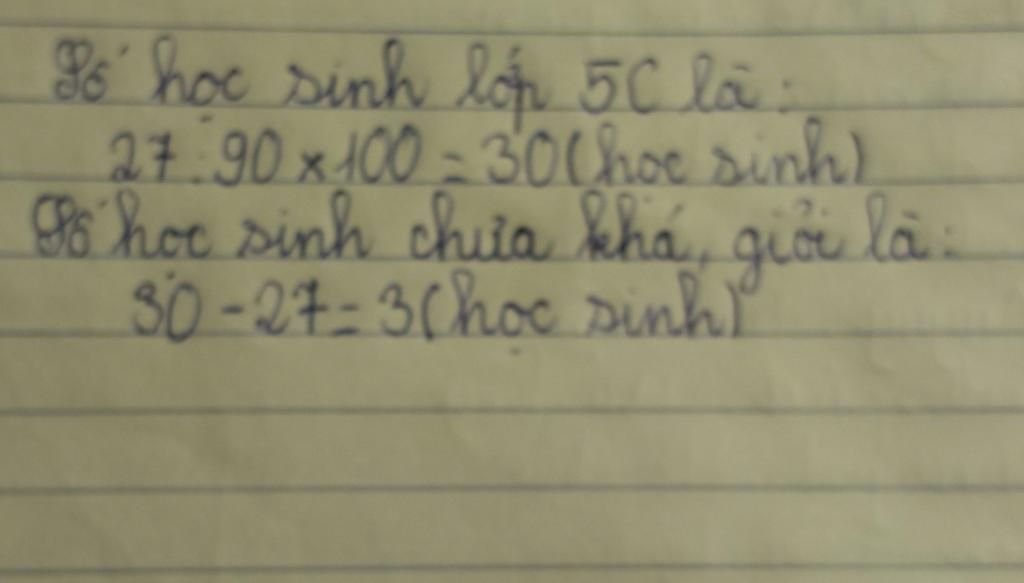 Số học sinh lớp 5C là:
27 : 90 x 100 = 30 (học sinh)
Số học sinh chưa khá, giỏi là:
30 - 27 = 3 (học sinh)